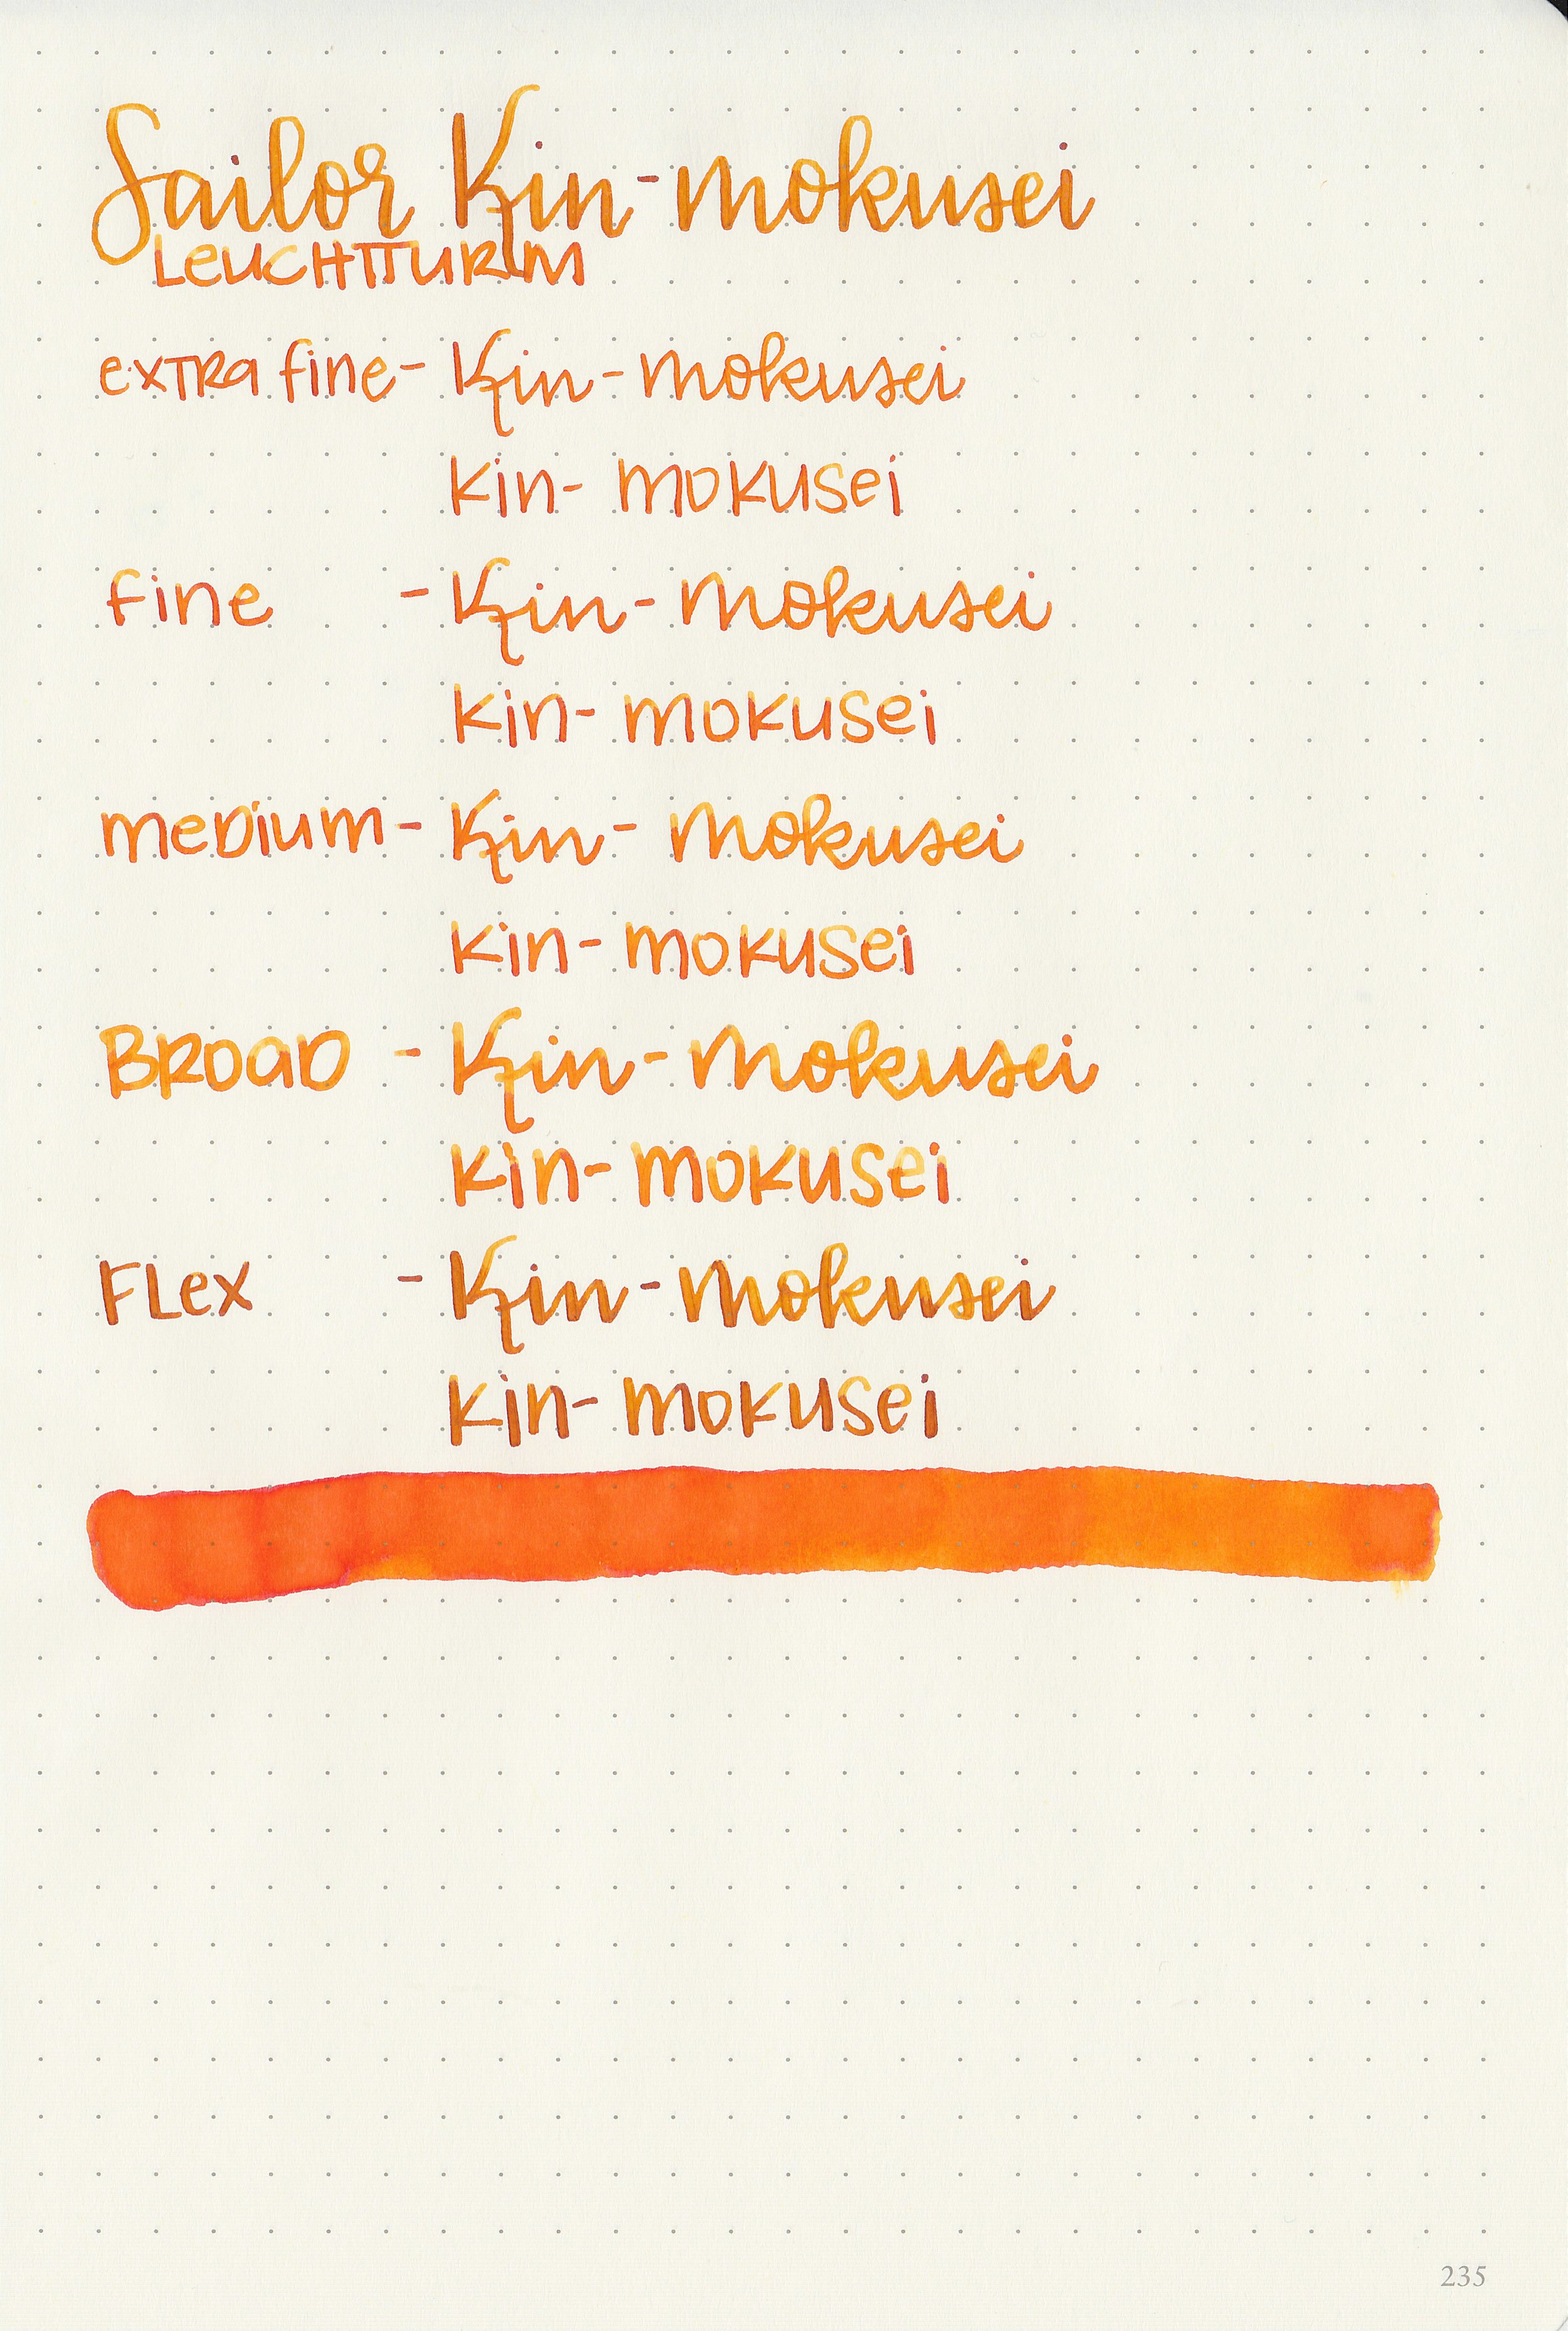 Sailor Kin-mokusei
LEUCHTTURM
exTRa fine- Kin-mokusei
Kin-mokusei
fine - Kin-mokusei
Kin-mokusei
meDium- Kin-mokusei
Kin-mokusei
BROaD - Kin-mokusei
Kin-mokusei
FLex - Kin-mokusei
Kin-mokusei
235